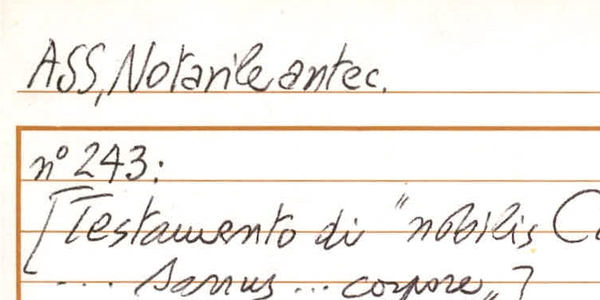 ASS, Notarile antec.
n° 243:
[Testamento di "nobilis
... sanus ... corpore„]